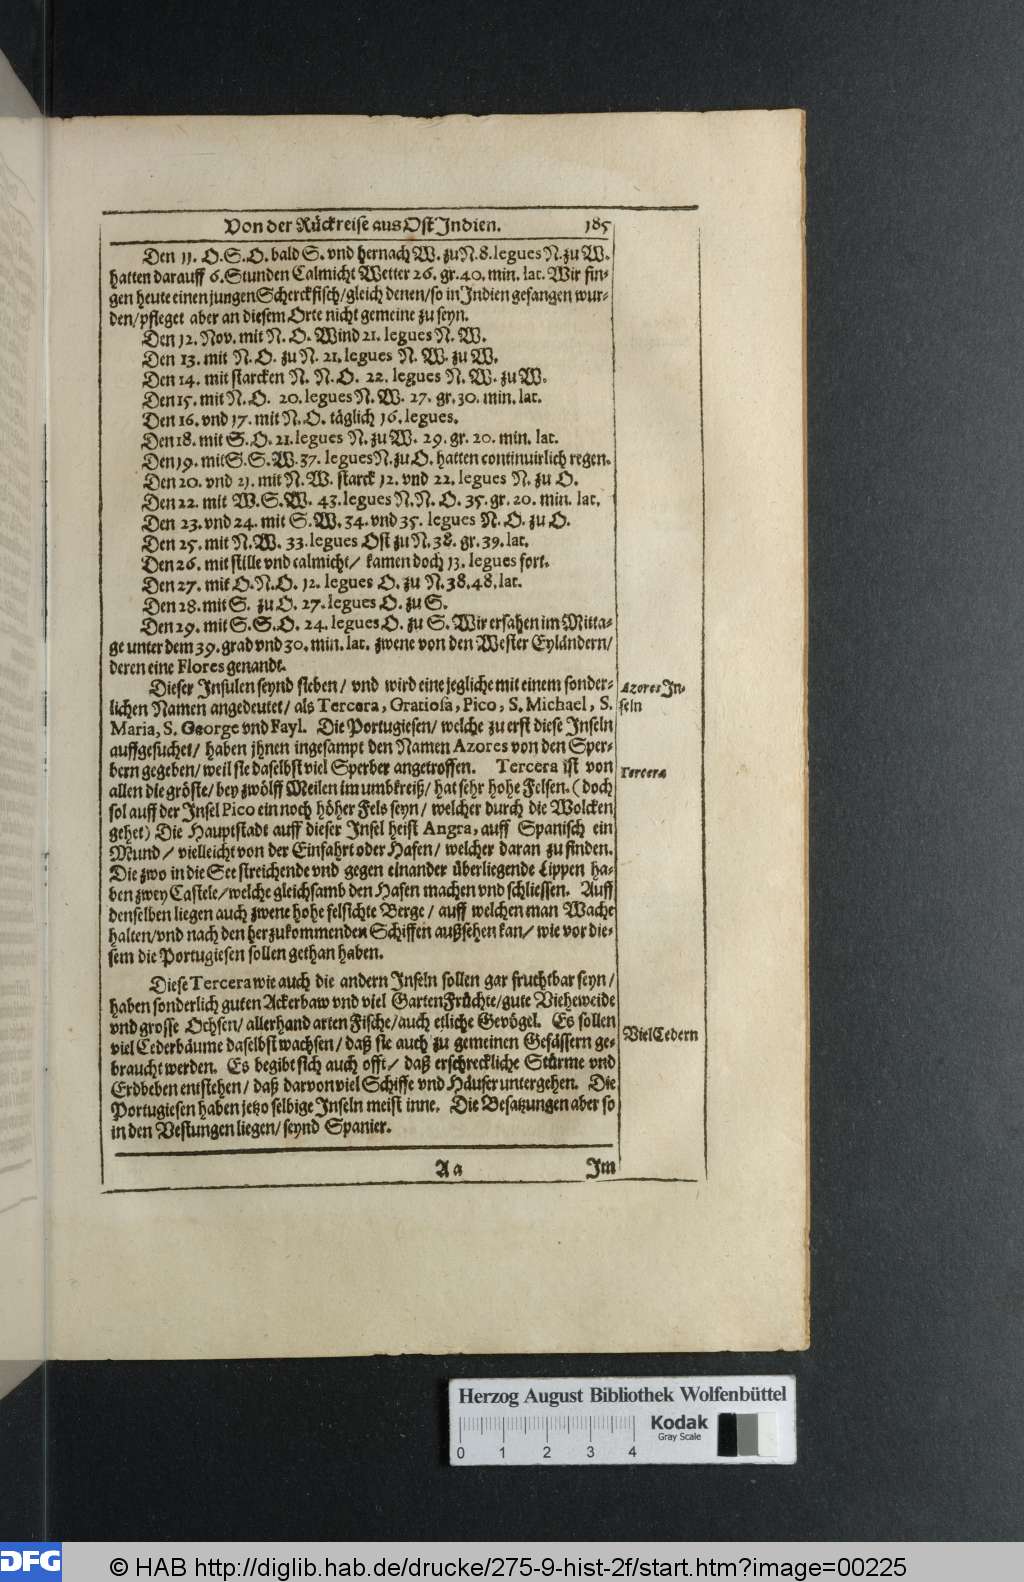 Von der Rückreise aus Ost Indien. 185
Den 11. O. S. O. bald S. vnd hernach W. zu N. 8. legues N. zu W.
hatten darauff 6. Stunden Calmicht Wetter 26. gr. 40. min. lat. Wir fin-
gen heute einen jungen Scherckfisch/ gleich denen/ so in Indien gefangen wur-
den/ pfleget aber an diesem Orte nicht gemeine zu seyn.
Den 12. Nov. mit N. O. Wind 21. legues N. W.
Den 13. mit N. O. zu N. 21. legues N. W. zu W.
Den 14. mit starcken N. N. O. 22. legues N. W. zu W.
Den 15. mit N. O. 20. legues N. W. 27. gr. 30. min. lat.
Den 16. vnd 17. mit N. O. täglich 16. legues.
Den 18. mit S. O. 21. legues N. zu W. 29. gr. 20. min. lat.
Den 19. mit S. S. W. 37. legues N. zu O. hatten continuirlich regen.
Den 20. vnd 21. mit N. W. starck 12. vnd 22. legues N. zu O.
Den 22. mit W. S. W. 43. legues N. N. O. 35. gr. 20. min. lat.
Den 23. vnd 24. mit S. W. 34. vnd 35. legues N. O. zu O.
Den 25. mit N. W. 33. legues Ost zu N. 38. gr. 39. lat.
Den 26. mit stille vnd calmicht/ kamen doch 13. legues fort.
Den 27. mit O. N. O. 12. legues O. zu N. 38. 48. lat.
Den 28. mit S. zu O. 27. legues O. zu S.
Den 29. mit S. S. O. 24. legues O. zu S. Wir ersahen im Mitta-
ge unter dem 39. grad vnd 30. min. lat. zwene von den Wester Eyländern/
deren eine Flores genandt.
Dieser Insulen seynd sieben/ vnd wird eine jegliche mit einem sonder-
lichen Namen angedeutet/ als Tercera, Gratiosa, Pico, S. Michael, S.
Maria, S. George vnd Fayl. Die Portugiesen/ welche zu erst diese Inseln
auffgesuchet/ haben jhnen ingesampt den Namen Azores von den Sper-
bern gegeben/ weil sie daselbst viel Sperber angetroffen. Tercera ist von
allen die gröste/ bey zwölff Meilen im umbkreiß/ hat sehr hohe Felsen. (doch
sol auff der Insel Pico ein noch höher Fels seyn/ welcher durch die Wolcken
gehet) Die Hauptstadt auff dieser Insel heist Angra, auff Spanisch ein
Mund/ vielleicht von der Einfahrt oder Hafen/ welcher daran zu finden.
Die zwo in die See streichende vnd gegen einander überliegende Lippen ha-
ben zwey Castele/ welche gleichsamb den Hafen machen vnd schliessen. Auff
denselben liegen auch zwene hohe felsichte Berge/ auff welchen man Wache
halten/ vnd nach den herzukommenden Schiffen außsehen kan/ wie vor die-
sem die Portugiesen sollen gethan haben.
Diese Tercera wie auch die andern Inseln sollen gar fruchtbar seyn/
haben sonderlich guten Ackerbaw vnd viel Garten Früchte/ gute Viehweide
vnd grosse Ochsen/ allerhand arten Fische/ auch etliche Gevögel. Es sollen
viel Cederbäume daselbst wachsen/ daß sie auch zu gemeinen Gefässern ge-
braucht werden. Es begibt sich auch offt/ daß erschreckliche Stürme vnd
Erdbeben entstehen/ daß darvon viel Schiffe vnd Häuser untergehen. Die
Portugiesen haben jetzo selbige Inseln meist inne. Die Besatzungen aber so
in den Vestungen liegen/ seynd Spanier.
Aa Im
Azores In-
seln
Tercera
Viel Cedern
Herzog August Bibliothek Wolfenbüttel
Kodak
Gray Scale
0 1 2 3 4
DFG
© HAB http://diglib.hab.de/drucke/275-9-hist-2f/start.htm?image=00225